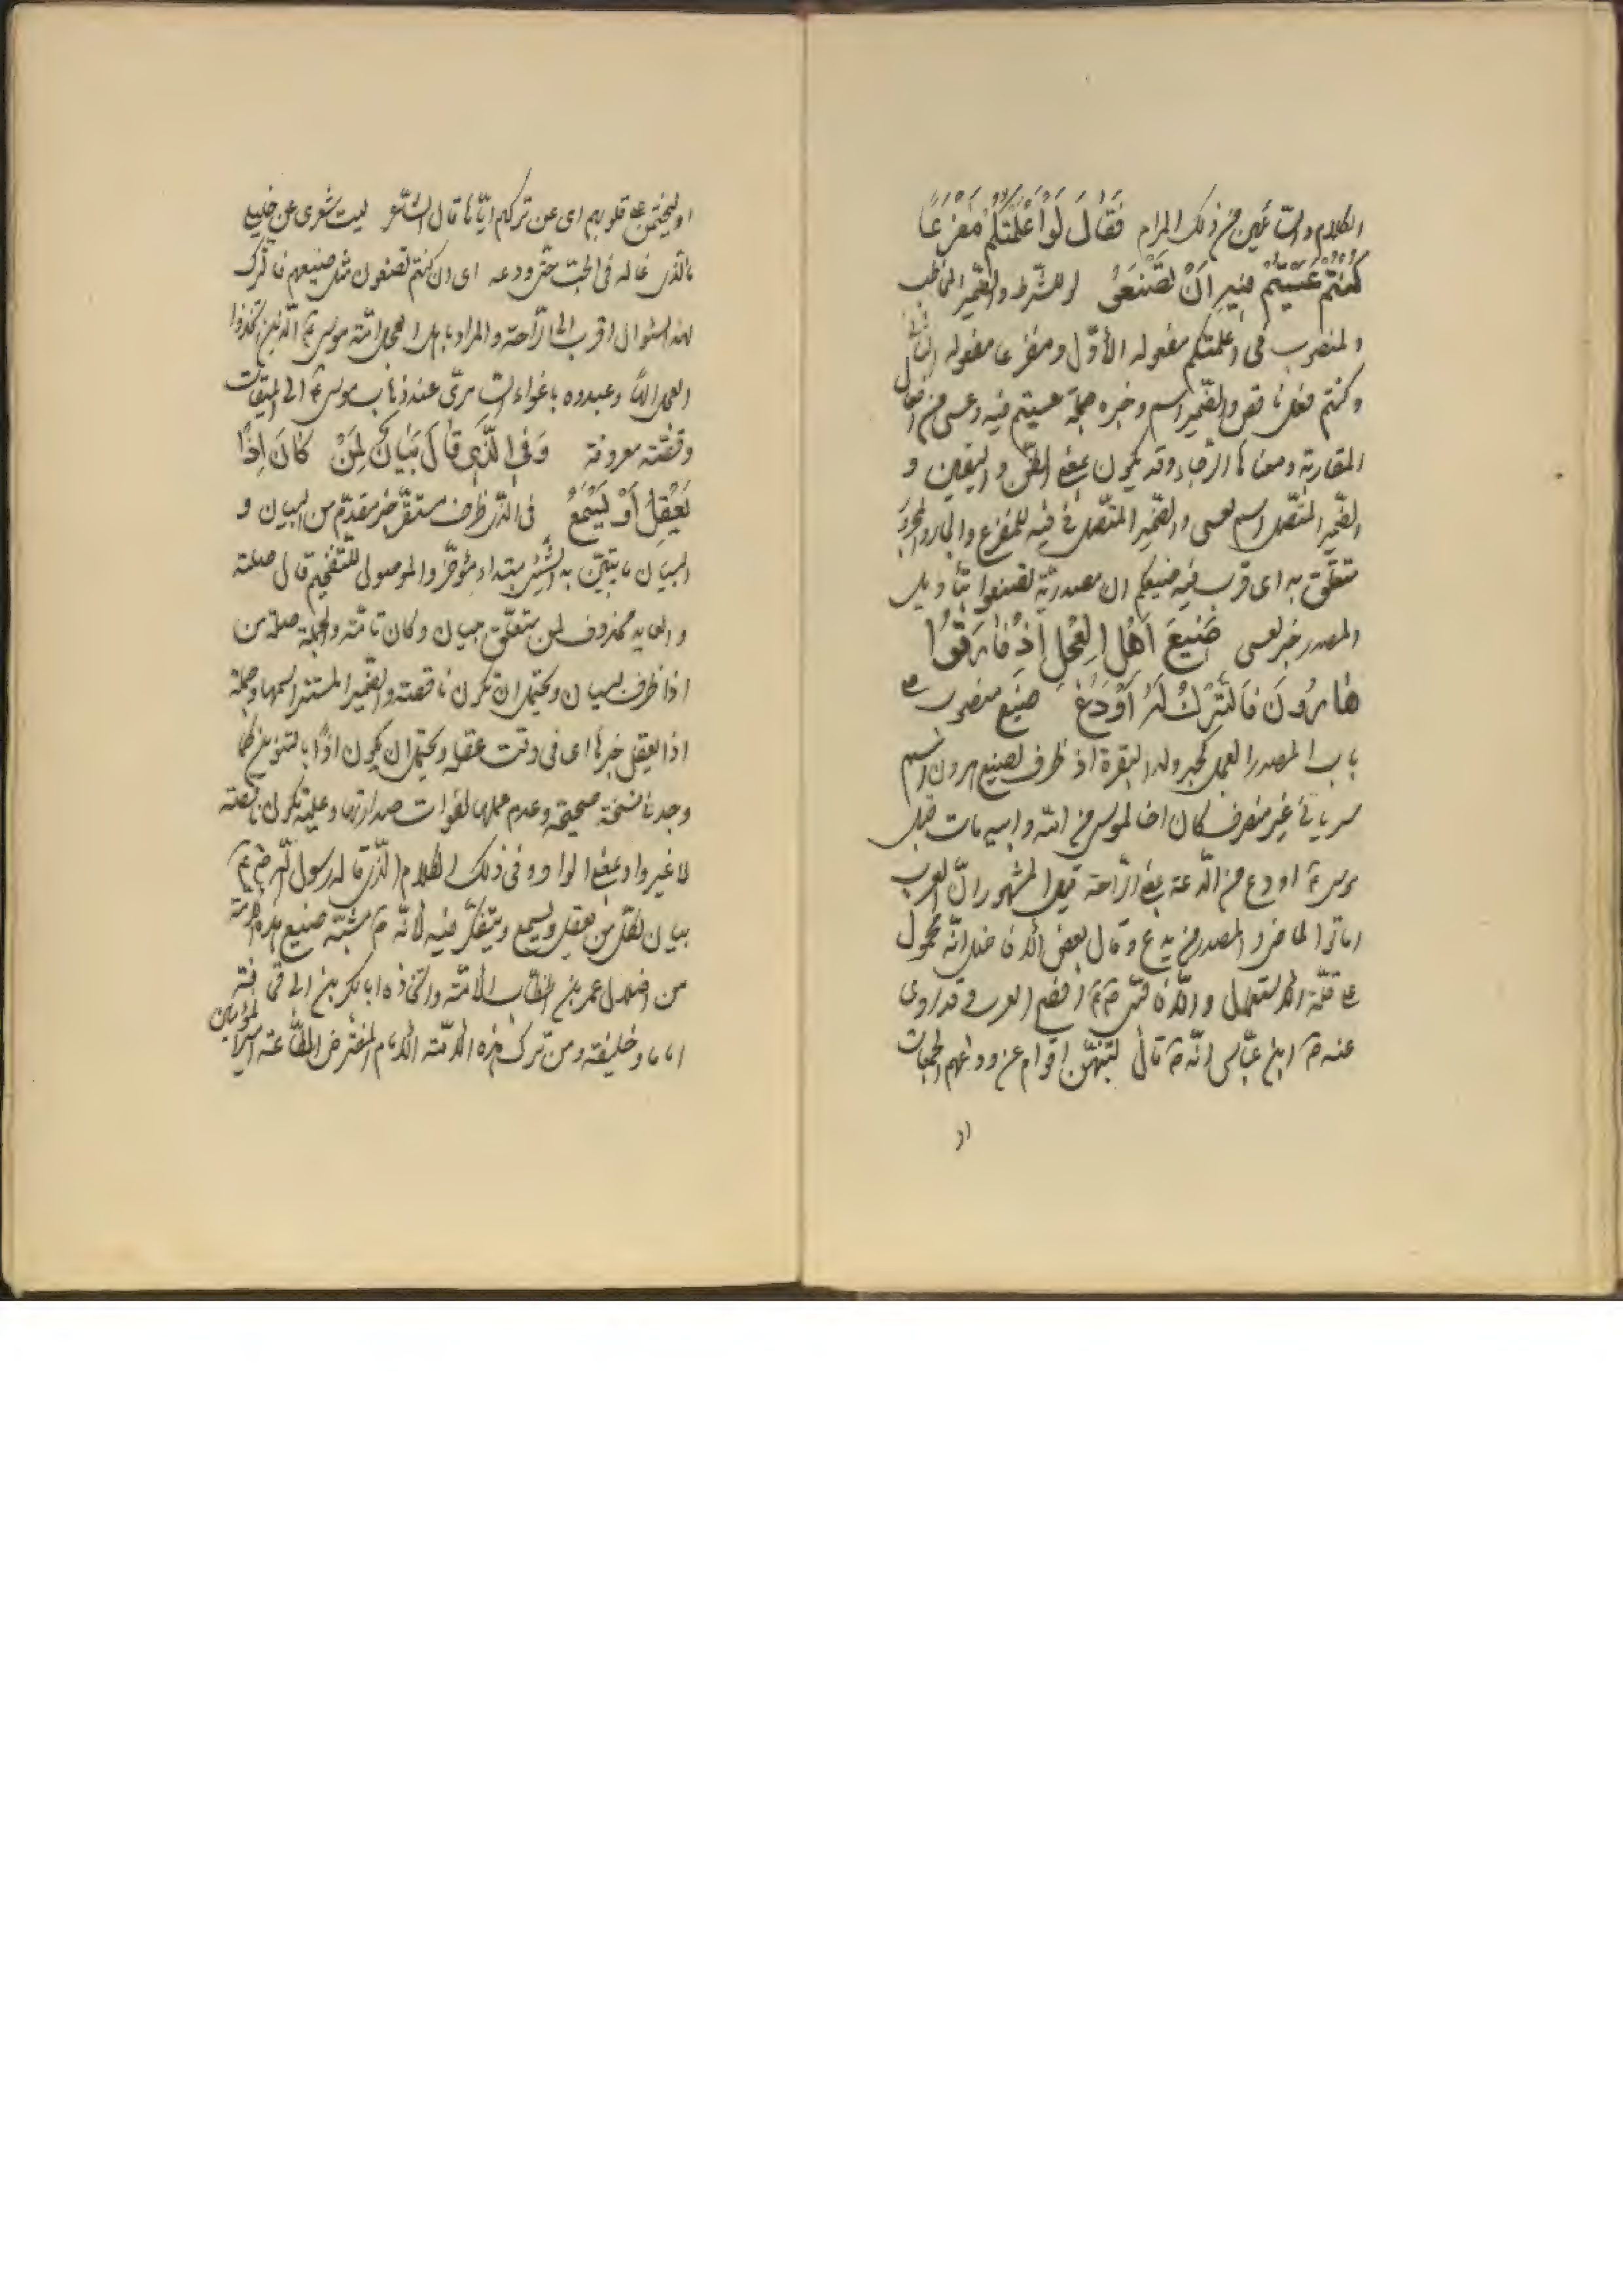 الكلام والسائلين من ذلك المرام فَقَالَ لَوْ أَعْلَمْتُكُمْ مَفْزَعًا
كُنْتُمْ عَسَيْتُمْ فِيهِ أَنْ تَصْنَعُوا لو للشرط والضمير المخاطب
المنصوب فى اعلمتكم مفعوله الأوّل ومفزعا مفعوله الثانى
وكنتم فعل ناقص والضمير اسم وخبره جملة عسيتم فيه وعسى من افعال
المقاربة ومعناها الرّجاء وقد يكون بمعنى الظنّ واليقين و
الضّمير المتّصل اسم لعسى والضّمير المتّصل فى فيه للمفزع والجار والمجرور
متعلّق به اى قرب فيه صنيعكم ان مصدريّة تصنعوا بتأويل
المصدر خبر لعسى صَنِيعَ أَهْلِ الْعِجْلِ إِذْ فَارَقُوا
هَارُونَ فَالتَّرْكُ لَهُ أَوْدَعُ صنيع منصوب على
باب المصدر العجل كحبر ولد البقرة اذ ظرف لصنيع هرون اسم
سريانى غير منصرف كان اخا لموسى من امّه وابيه مات قبل
موسى ع اودع من الدّعة بمعنى الرّاحة قيل المشهور انّ العرب
اماتوا الماضى والمصدر من يدع وقال بعض الأفاضل انّه محمول
على قلّة الاستعمال والّا فالنبى ص افصح العرب وقد روى
عنه ص ابن عبّاس انّه ص قال لينتهينّ اقوام عن ودعهم الجمعات
او
او ليختمن على قلوبهم اى عن تركهم ايّاها قال الشّاعر ليت شعرى عن خليلى
ماالذى غاله فى الحبّ حتّى ودعه اى ان كنتم تصنعون مثل صنيعهم فالترك
لهذا السّؤال اقرب الى الرّاحة والمراد باهل العجل امّة موسى ع الّذين اتخذوا
العجل الها وعبدوه باغواء السّامرىّ عند ذهاب موسى ع الى الميقات
وقصّته معروفة وَفِى الَّذِى قَالَ بَيَانٌ لِمَنْ كَانَ إِذًا
يَعْقِلُ أَوْ يَسْمَعُ فى الّذى ظرف مستقرّ خبر مقدّم من البيان و
البيان ما يتبيّن به الشّىء مبتداء مؤخّر والموصول للتّفخيم قال صلته
والعايد محذوف لمن متعلّق ببيان وكان تامّة والجملة صلة من
اذا ظرف لبيان ويحتمل ان تكون ناقصة والضّمير المستتر اسمها وجملة
اذا يعقل خبرها اى فى وقت عقله ويحتمل ان يكون اذًا بالتنوين كما
وجدنا نسخة صحيحة وعدم عملها لفوات صدارتها وعليه تكون ناقصة
لا غير واو بمعنى الواو وفى ذلك الكلام الّذى قاله رسول اللّه ص
بيان لكلّ من يعقل ويسمع ويتفكّر فيه لأنّه ص شبّه صنيع هذه الامّة
من اضلال عمر بن الخطّاب الامّة واتّخاذه ابا بكر بن ابى قحافة
اماما وخليفة ومن ترك هذه الأمّة الأمام المفترض الطّاعة امير المؤمنين